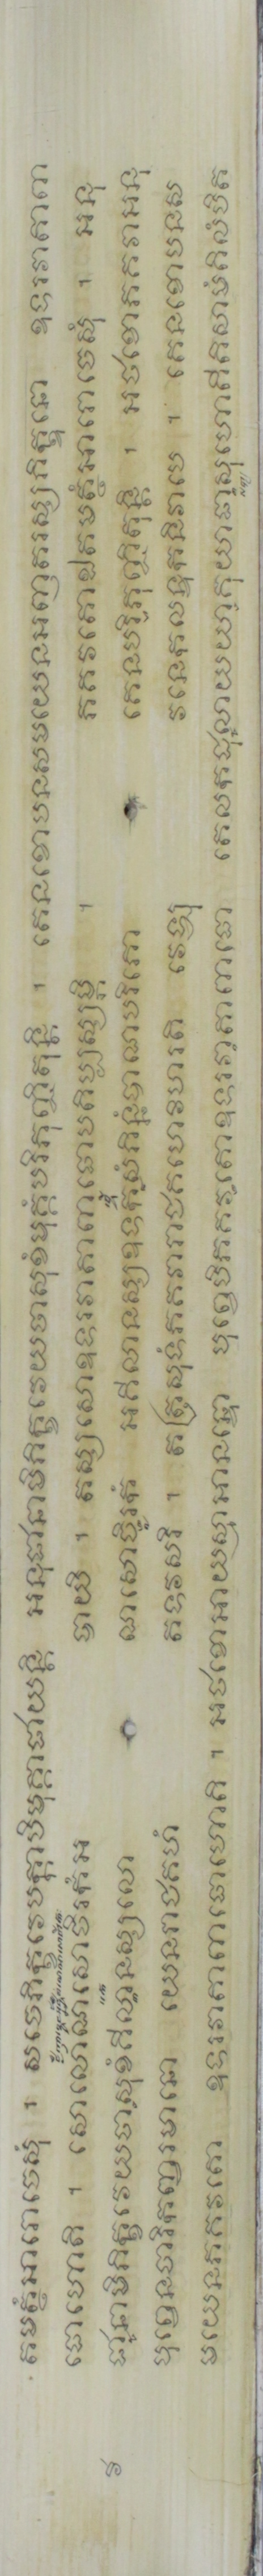 តមត្ថំអារោចេសុំ ។ សចេភិក្ខវេបក្កាបិមុគ្គាជាយន្តិ អនុជានាមិភិក្ខវេយថាសុខំមុគ្គំបរិភុញ្ជិតុន្តិ ។ តេនខោបនសមយេនអញតរស្សភិក្ខុនោ ឧទរវាតាពា
ធោហោតិ ។ សោលោណសោវិរកំអ បាយិ ។ តស្សសោឧទរវាតាពាធោបតិប្បស្សម្ភិ ។ ភគវតោឯតមត្ថំអារោចេសុំ ។ អនុ
ជានាមិភិក្ខវេយថាសុខំគីលានស្សលោ ណសោវិរកំ អគីលានស្សឧទកសំភិន្នំបាណបរិភោ គេនបរិភុញ្ជិតុន្តិ ។ អថខោភគវាអនុ
បុព្វេនចារិកញ្ចរមានោ យេនរាជគហំ តទវសរិ ។ តត្រសុទំភគវារាជគហេវិហរតិ វេឡុ វនេកលន្ទកនិវាបេ ។ តេនខោបនស
មយេនភគវតោ ឧទរវាតាពាធោហោតិ ។ អថខោអាយស្មាអានន្ទោ បុព្វេបិភគវតោឧទរវាតាពាធោ តេលកដុលាយយាគុយាផាសុហោតីតិសាមំតិលំបិត